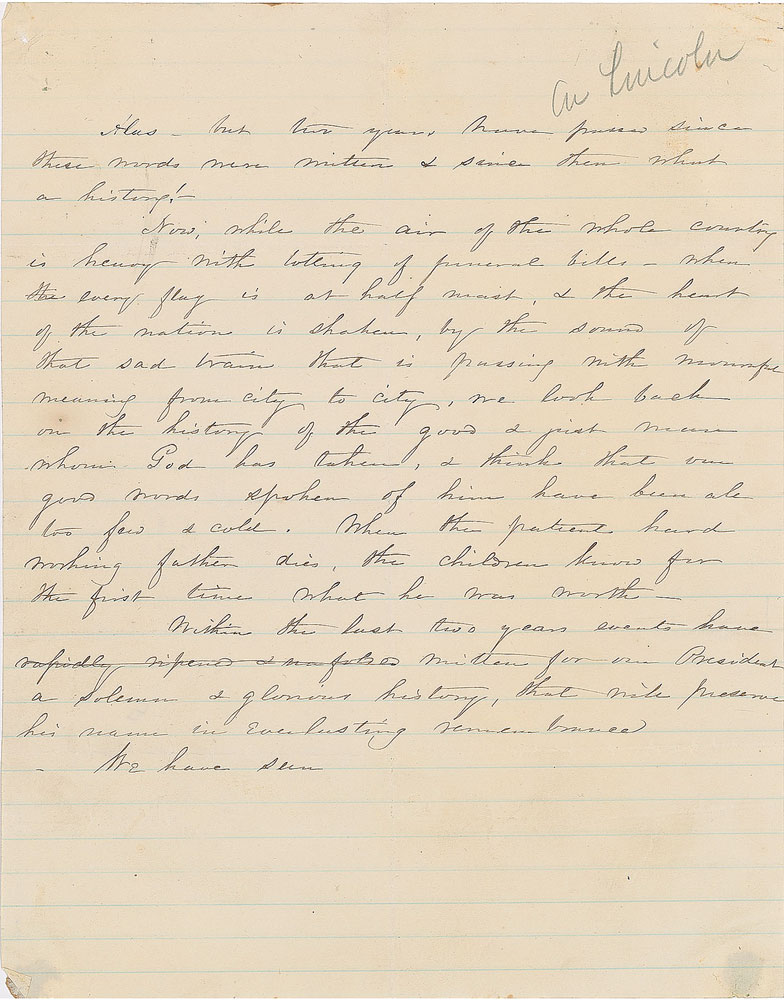 on Lincoln
Alas – but two years have passed since
these words were written & since then what
a history! –
Now, while the air of the whole country
is heavy with tolling of funeral bells – when
the every flag is at half mast, & the heart
of the nation is shaken, by the sound of
that sad train that is passing with mournful
meaning from city to city, we look back
on the history of the good & just man
whom God has taken, & think that our
good words spoken of him have been all
too few & cold. When the patient hard
working father dies, the children know for
the first time what he was worth –
Within the last two years events have
rapidly ripened & unfolded written for our President
a solemn & glorious history, that will preserve
his name in Everlasting remembrance
– We have seen